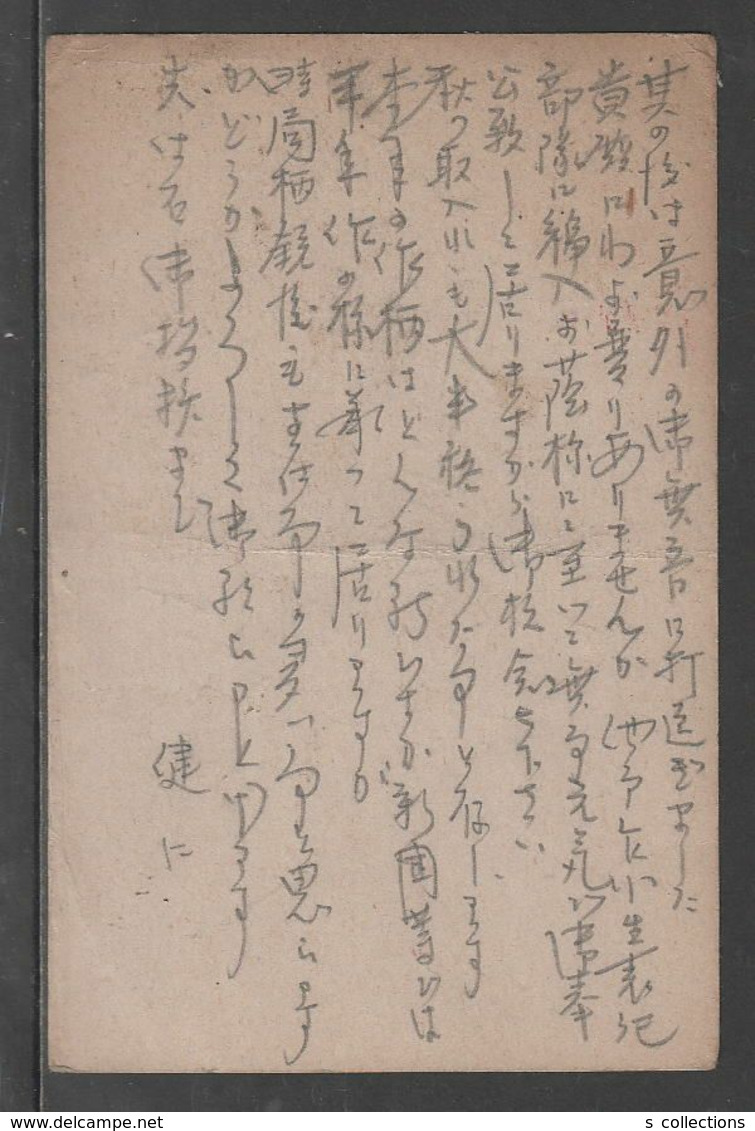 其の後は意外の御無音に打過ぎました
貴殿にわお変りありませんか 他事乍小生表記
部隊に編入お蔭様にて至って無事元気で御奉
公致して居りますから御放念下さい
秋の取入れも大半終られた事と存じます
本年の作柄はどんな でせうか 新聞等では
平年作の様に 居りますが
時局柄銃後も支は事の多い事と思います
がどうかよろしく御願ひ申し上げます
先は右御挨拶まで
健に
s collections